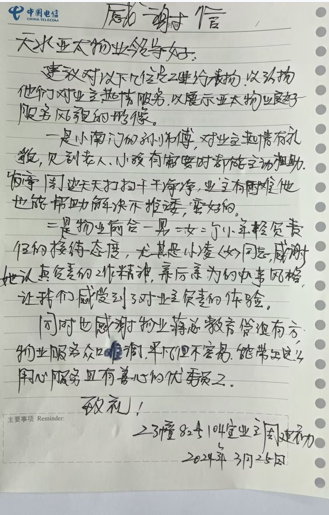 中国电信
CHINA TELECOM
感谢信
天水亚太物业领导好:
建议对以下几位员工进行表扬,以弘扬
他们对业主热情服务,以展示亚太物业良好
服务风貌的形像。
一是小南门的孙师傅,对业主热情有礼
貌,见到老人、小孩有需要时都能主动帮助,
周边天天打扫干干净净,业主有困难他
也能帮助解决不推诿,蛮好的。
二是物业前台一男一女二个小年轻负责
任的接待态度,尤其是小凌(女)同志,感谢
她认真负责的工作精神,事后为的办事风格,
让我们感受到了对业主负责的体验。
同时也感谢物业蒋总教育管理有方,
物业服务众口难调,平凡但不容易,能带出这么
用心服务且有善心的优秀员工。
致礼!
主要事项 Reminder
23幢82号104室业主周建初
2024年3月25日